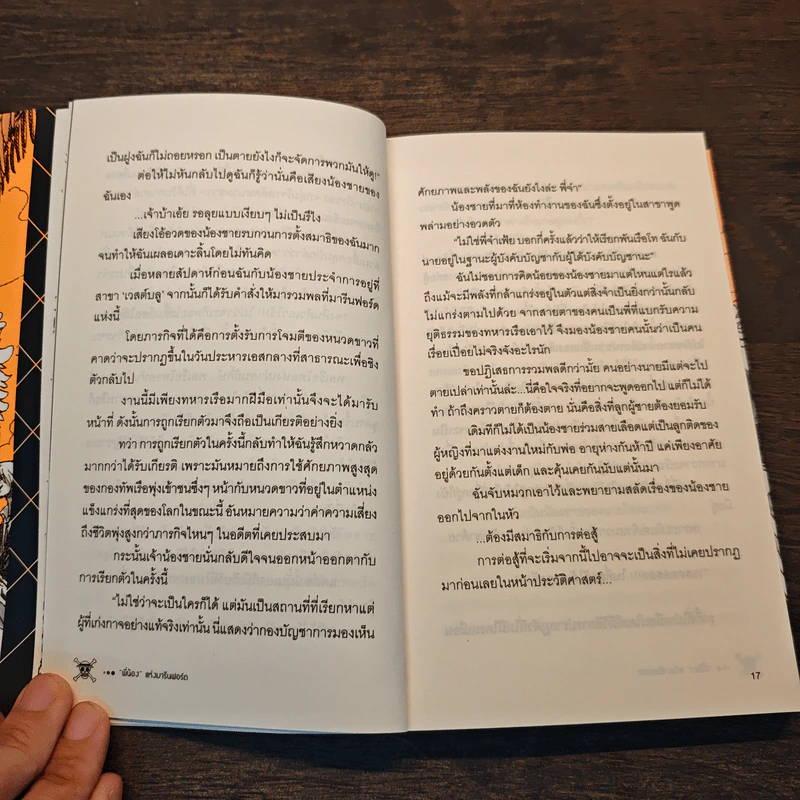 เป็นฝูงฉันก็ไม่ถอยหรอก เป็นตายยังไงก็จะจัดการพวกมันให้ดู!"
ต่อให้ไม่หันกลับไปดูฉันก็รู้ว่านั่นคือเสียงน้องชายของ
ฉันเอง
...เจ้าบ้าเอ้ย รอลุยแบบเงียบๆ ไม่เป็นรึไง
เสียงโอ้อวดของน้องชายรบกวนการตั้งสมาธิของฉันมาก
จนทำให้ฉันเผลอเดาะลิ้นโดยไม่ทันคิด
เมื่อหลายสัปดาห์ก่อนฉันกับน้องชายประจำการอยู่ที่
สาขา 'เวสต์บลู' จากนั้นก็ได้รับคำสั่งให้มารวมพลที่มารีนฟอร์ด
แห่งนี้
โดยภารกิจที่ได้คือการตั้งรับการโจมตีของหนวดขาวที่
คาดว่าจะปรากฏขึ้นในวันประหารเอสกลางที่สาธารณะเพื่อชิง
ตัวกลับไป
งานนี้มีเพียงทหารเรือมากฝีมือเท่านั้นจึงจะได้มารับ
หน้าที่ ดังนั้นการถูกเรียกตัวมาจึงถือเป็นเกียรติอย่างยิ่ง
ทว่า การถูกเรียกตัวในครั้งนี้กลับทำให้ฉันรู้สึกหวาดกลัว
มากกว่าได้รับเกียรติ เพราะมันหมายถึงการใช้ศักยภาพสูงสุด
ของกองทัพเรือพุ่งเข้าชนซึ่งๆ หน้ากับหนวดขาวที่อยู่ในตำแหน่ง
แข็งแกร่งที่สุดของโลกในขณะนี้ อันหมายความว่าค่าความเสี่ยง
ถึงชีวิตพุ่งสูงกว่าภารกิจไหนๆ ในอดีตที่เคยประสบมา
กระนั้นเจ้าน้องชายนั่นกลับดีใจจนออกหน้าออกตากับ
การเรียกตัวในครั้งนี้
"ไม่ใช่ว่าจะเป็นใครก็ได้ แต่มันเป็นสถานที่ที่เรียกหาแต่
ผู้ที่เก่งกาจอย่างแท้จริงเท่านั้น นี่แสดงว่ากองบัญชาการมองเห็น
"พี่น้อง" แห่งมารีนฟอร์ด
ศักยภาพและพลังของฉันยังไงล่ะ พี่จ๋า"
น้องชายที่มาที่ห้องทำงานของฉันซึ่งตั้งอยู่ในสาขาพูด
พล่ามอย่างอวดตัว
"ไม่ใช่พี่จ๋าเฟ้ย บอกกี่ครั้งแล้วว่าให้เรียกพันเรือโท ฉันกับ
นายอยู่ในฐานะผู้บังคับบัญชากับผู้ใต้บังคับบัญชานะ"
ฉันไม่ชอบการคิดน้อยของน้องชายมาแต่ไหนแต่ไรแล้ว
ถึงแม้จะมีพลังที่กล้าแกร่งอยู่ในตัวแต่สิ่งจำเป็นยิ่งกว่านั้นกลับ
ไม่แกร่งตามไปด้วย จากสายตาของคนเป็นพี่ที่แบกรับความ
ยุติธรรมของทหารเรือเอาไว้ จึงมองน้องชายคนนั้นว่าเป็นคน
เรื่อยเปื่อยไม่จริงจังอะไรนัก
ขอปฏิเสธการรวมพลดีกว่ามั้ย คนอย่างนายมีแต่จะไป
ตายเปล่าเท่านั้นล่ะ...นี่คือใจจริงที่อยากจะพูดออกไป แต่ก็ไม่ได้
ทำ ถ้าถึงคราวตายก็ต้องตาย นั่นคือสิ่งที่ลูกผู้ชายต้องยอมรับ
เดิมทีก็ไม่ได้เป็นน้องชายร่วมสายเลือดแต่เป็นลูกติดของ
ผู้หญิงที่มาแต่งงานใหม่กับพ่อ อายุห่างกันห้าปี แค่เพียงอาศัย
อยู่ด้วยกันตั้งแต่เด็ก และคุ้นเคยกันนับแต่นั้นมา
ฉันจับหมวกเอาไว้และพยายามสลัดเรื่องของน้องชาย
ออกไปจากในหัว
...ต้องมีสมาธิกับการต่อสู้
การต่อสู้ที่จะเริ่มจากนี้ไปอาจจะเป็นสิ่งที่ไม่เคยปรากฏ
มาก่อนเลยในหน้าประวัติศาสตร์...
17